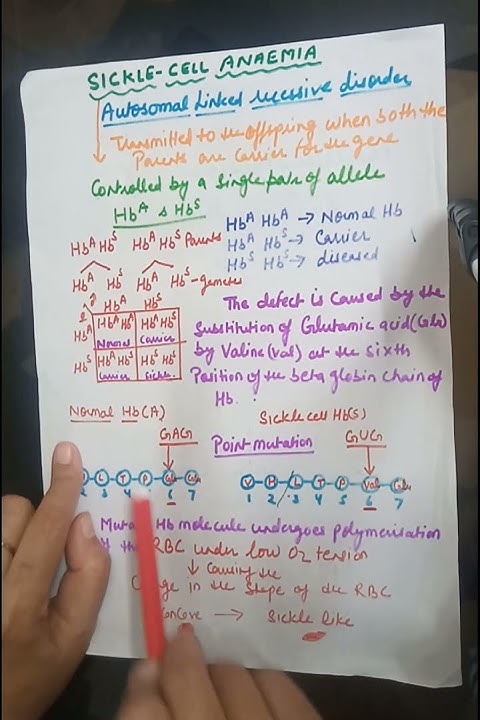 SICKLE-CELL ANAEMIA
Autosomal Linked recessive disorder
Transmitted to the offspring when both the
Parents are Carrier for the gene
Controlled by a single pair of allele
HbA & HbS
HbA HbS HbA HbS Parents
HbA HbS HbA HbS - gametes
HbA HbS
HbA HbA HbA HbA HbS
Normal Carrier
HbS HbA HbS HbS HbS
Carrier Sickle
HbA HbA → Normal Hb
HbA HbS → Carrier
HbS HbS → diseased
The defect is caused by the
Substitution of Glutamic acid (Glu)
by Valine (val) at the sixth
Position of the beta globin chain of
Hb.
Normal Hb(A)
Sickle cell Hb(S)
GAG Point mutation GUG
L T P Glu Glu
2 4 6 7
V H L T P Val Glu
1 2 3 4 5 6 7
Mutant Hb molecule undergoes polymerisation
the RBC under low O2 tension
↓ Causing the
in the shape of the RBC
→ Sickle like